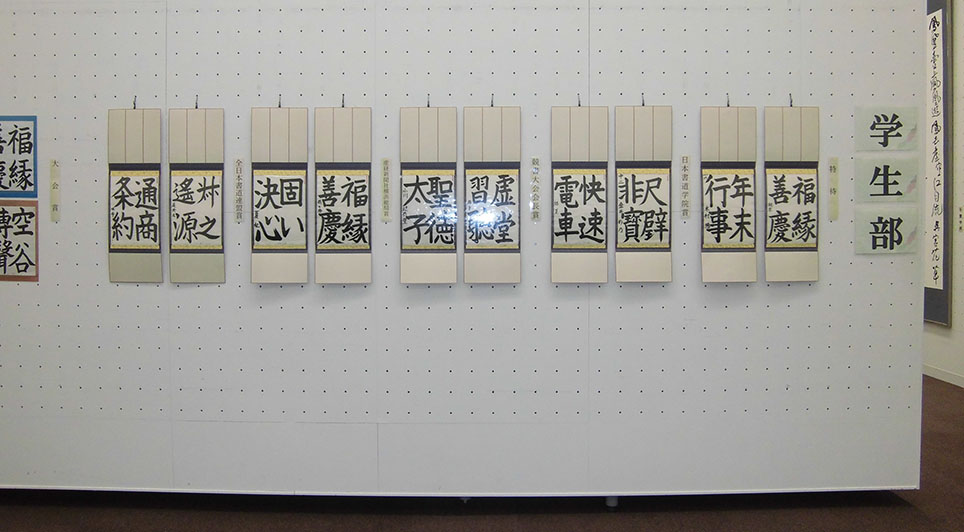 学生部
特待
福縁
善慶
年末
行事
日本書道学院賞
尺璧
非寶
快速
電車
競書大会長賞
虚堂
習聴
聖徳
太子
福縁
善慶
固い
決心
全日本書道連盟賞
之
遙源
通商
条約
大会賞
福縁
善慶
空谷
傳聲